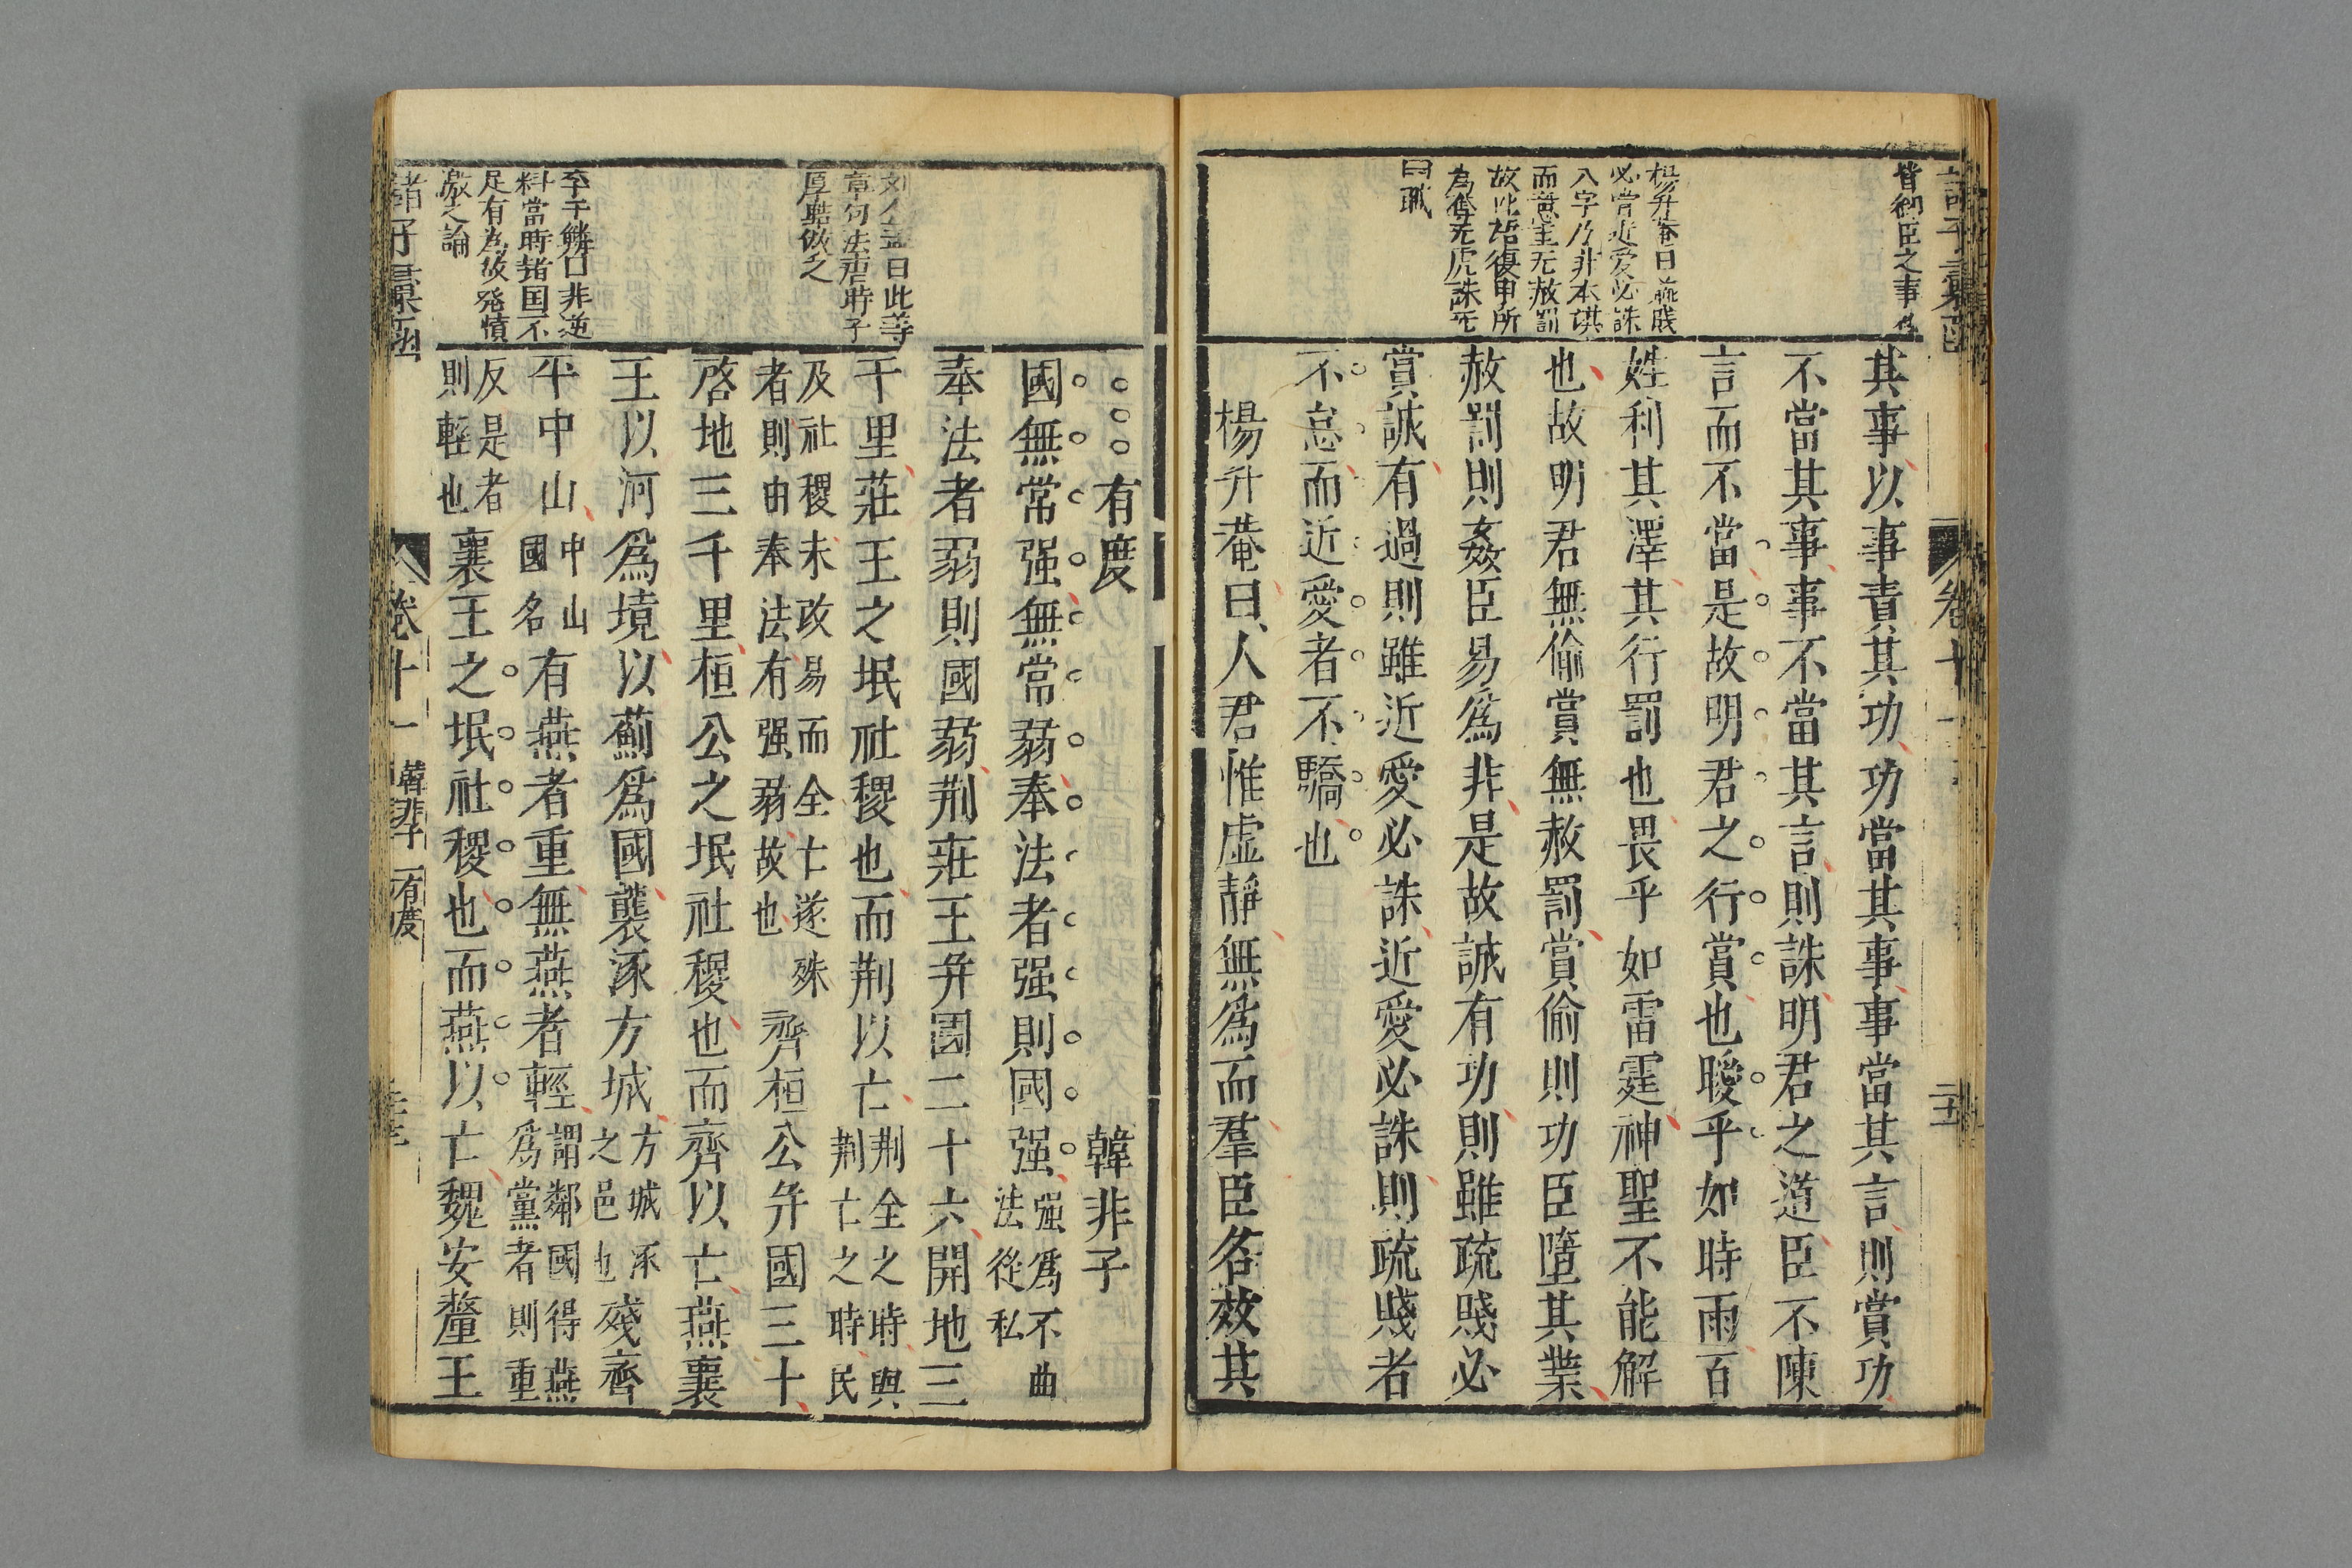 皆御臣之事
其事以事責其功功當其事事當其言則賞功
不當其事事不當其言則誅明君之道臣不陳
言而不當是故明君之行賞也曖乎如時雨百
姓利其澤其行罰也畏乎如雷霆神聖不能解
也故明君無偷賞無赦罰賞偷則功臣墮其業
赦罰則姦臣易爲非是故誠有功則雖疏賤必
賞誠有過則雖近愛必誅近愛必誅則疏賤者
不怠而近愛者不驕也
楊升菴曰人君惟虛靜無爲而羣臣各效其
楊升菴曰疏賤
必賞近愛必誅
八字乃非本旗
而意主无赦罰
故此語復申所
為
无
虎
誅
死
卷十一
有度
韓非子
國無常强無常弱奉法者强則國强
强爲不曲
法從私
奉法者弱則國弱荆莊王幷國二十六開地三
千里莊王之氓社稷也而荆以亡
荆全之時與
荆亡之時民
及社稷未改易而全亡遂殊
者則由奉法有强弱故也
齊桓公幷國三十
啓地三千里桓公之氓社稷也而齊以亡燕襄
王以河爲境以薊爲國襲涿方城
方城涿
之邑也
殘齊
平中山
中山
國名
有燕者重無燕者輕
謂鄰國得燕
爲黨者則重
反是者
則輕也
襄王之氓社稷也而燕以亡魏安釐王
曰此等
章句法唐時子
厚酷倣之
李于鱗曰非逆
料當時諸国不
足有為故発憤
激之論
諸子彙函
卷十一
韓非子
有度